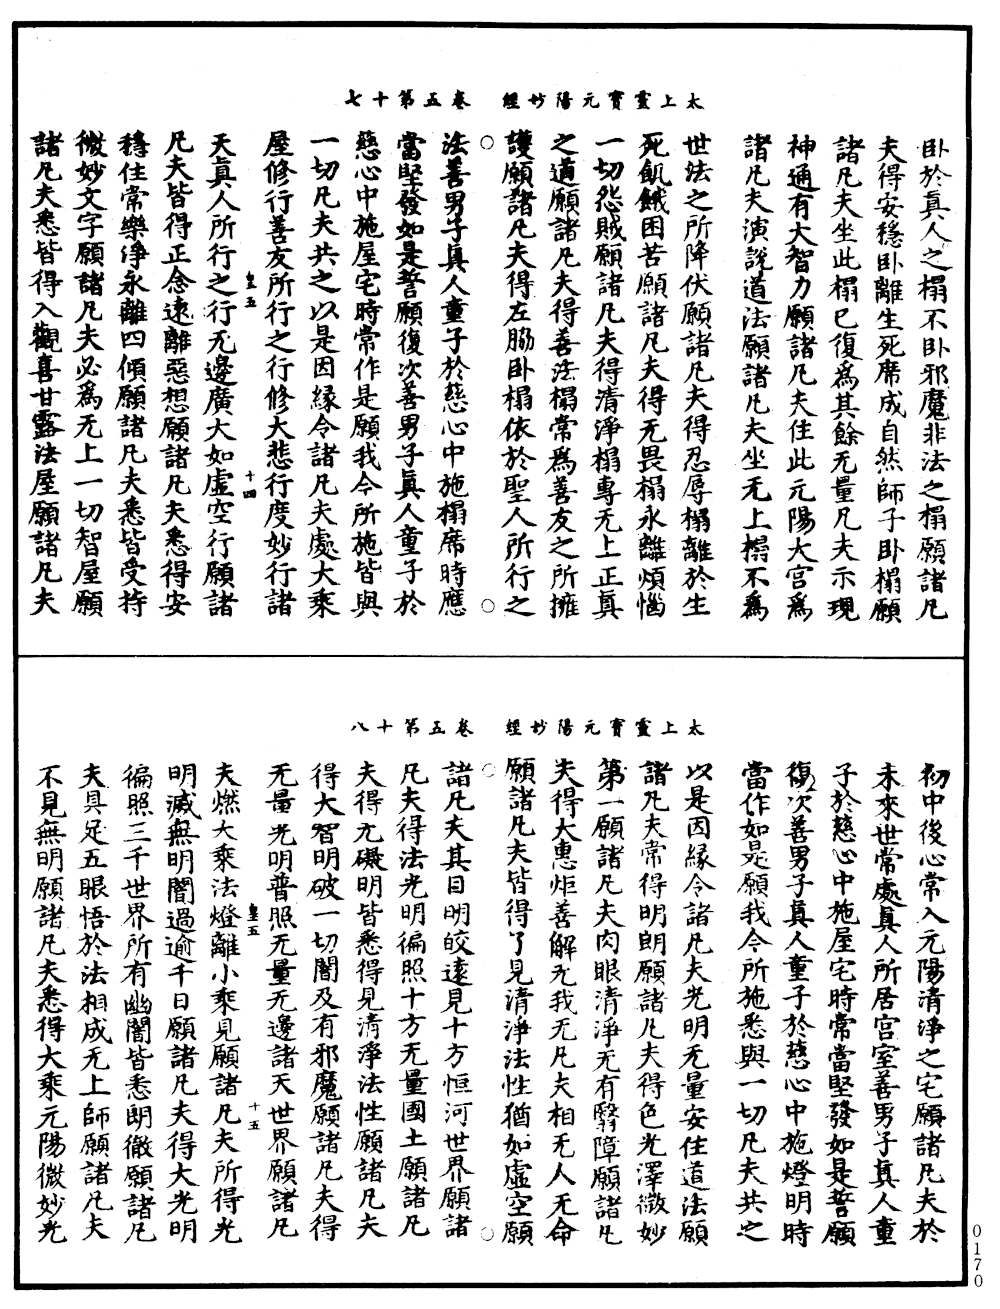 太上靈寶元陽妙經　卷五第十七
卧於真人之榻不卧邪魔非法之榻願諸凡
夫得安穩卧離生死席成自然師子卧榻願
諸凡夫坐此榻已復為其餘无量凡夫示現
神通有大智力願諸凡夫住此元陽大宫為
諸凡夫演說道法願諸凡夫坐无上榻不為
世法之所降伏願諸凡夫得忍辱榻離於生
死飢餓困苦願諸凡夫得无畏榻永離煩惱
一切怨賊願諸凡夫得清淨榻專无上正真
之道願諸凡夫得善法榻常為善友之所擁
護願諸凡夫得左脇卧榻依於聖人所行之
法善男子真人童子於慈心中施榻席時應
當堅發如是誓願復次善男子真人童子於
慈心中施屋宅時常作是願我今所施皆與
一切凡夫共之以是因緣令諸凡夫處大乘
屋修行善友所行之行修大悲行度妙行諸
皇五　十四
天真人所行之行无邊廣大如虛空行願諸
凡夫皆得正念遠離惡想願諸凡夫悉得安
穩住常樂淨永離四傾願諸凡夫悉皆受持
微妙文字願諸凡夫必為无上一切智屋願
諸凡夫悉皆得入觀喜甘露法屋願諸凡夫
太上靈寶元陽妙經　卷五第十八
初中後心常入元陽清淨之宅願諸凡夫於
未來世常處真人所居宫室善男子真人童
子於慈心中施屋宅時常當堅發如是誓願
復次善男子真人童子於慈心中施燈明時
當作如是願我今所施悉與一切凡夫共之
以是因緣令諸凡夫光明无量安住道法願
諸凡夫常得明朗願諸凡夫得色光澤微妙
第一願諸凡夫肉眼清淨无有翳障願諸凡
夫得大惠炬善解无我无凡夫相无人无命
願諸凡夫皆得了見清淨法性猶如虛空願
諸凡夫其目明皎遠見十方恒河世界願諸
凡夫得法光明徧照十方无量國土願諸凡
夫得无礙明皆悉得見清淨法性願諸凡夫
得大智明破一切闇及有邪魔願諸凡夫得
无量光明普照无量无邊諸天世界願諸凡
皇五　十五
夫燃大乘法燈離小乘見願諸凡夫所得光
明滅無明闇過逾千日願諸凡夫得大光明
徧照三千世界所有幽闇皆悉朗徹願諸凡
夫具足五眼悟於法相成无上師願諸凡夫
不見無明願諸凡夫悉得大乘元陽微妙光
0170